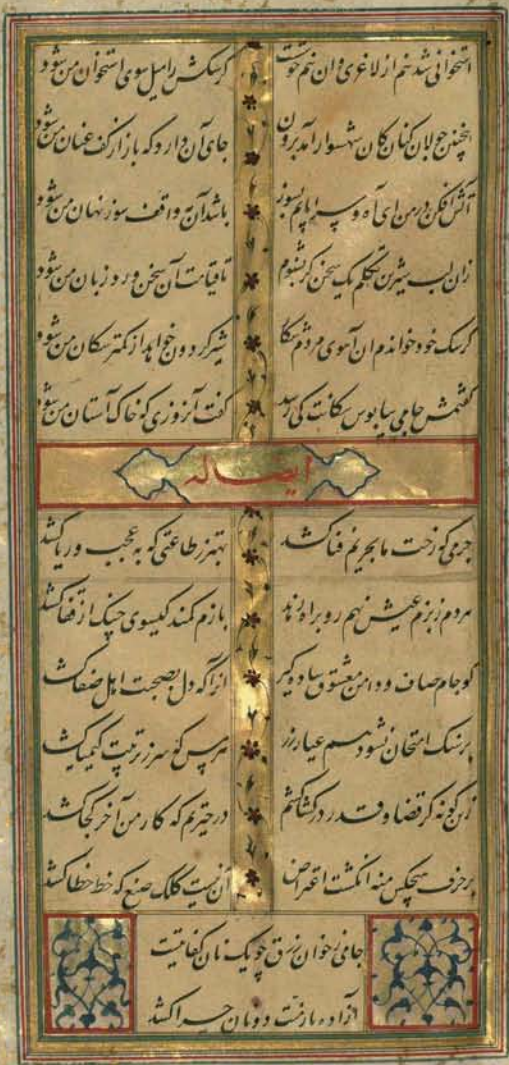 استخوانی شد تنم از لاغری وان هم خوشست گر سگش را میل سوی استخوان من شود
همچنین جولان کنان کان شهسوار آمد برون جای آن دارد که باز از کف عنان من شود
آتش افکن در من ای آه و سراپایم بسوز باشد آن مه واقف سوز نهان من شود
زان لب شیرین تکلم یک سخن گر بشنوم تا قیامت آن سخن ورد زبان من شود
گر سگ خود خواندم آن آهوی مردم شکار شیر گردون خواهد از کمتر سگان من شود
گفتمش جامی بپابوس سگانت کی رسد گفت آنروزی که خاک آستان من شود
ایضاله
جرمی کو رخت ما بحریم فنا کشد بهتر ز طاعتی که به عجب و ریا کشد
هر دم ز بزم عیش نهم رو براه زهد بازم کمند گیسوی چنگ از قفا کشد
کو جام صاف و دامن معشوق ساده گیر آنرا که دل بصحبت اهل صفا کشد
بر سنگ امتحان نشود هم عیار زر هر مس که سر ز تربیت کیمیا کشد
زین گونه کز قضا و قدر در کشاکشم در حیرتم که کار من آخر کجا کشد
بر حرف هیچکس منه انگشت اعتراض آن نیست کلک صنع که خط خطا کشد
جامی ز خوان رزق چو یک نان کفایتست
آزاده بار منت دونان چرا کشد